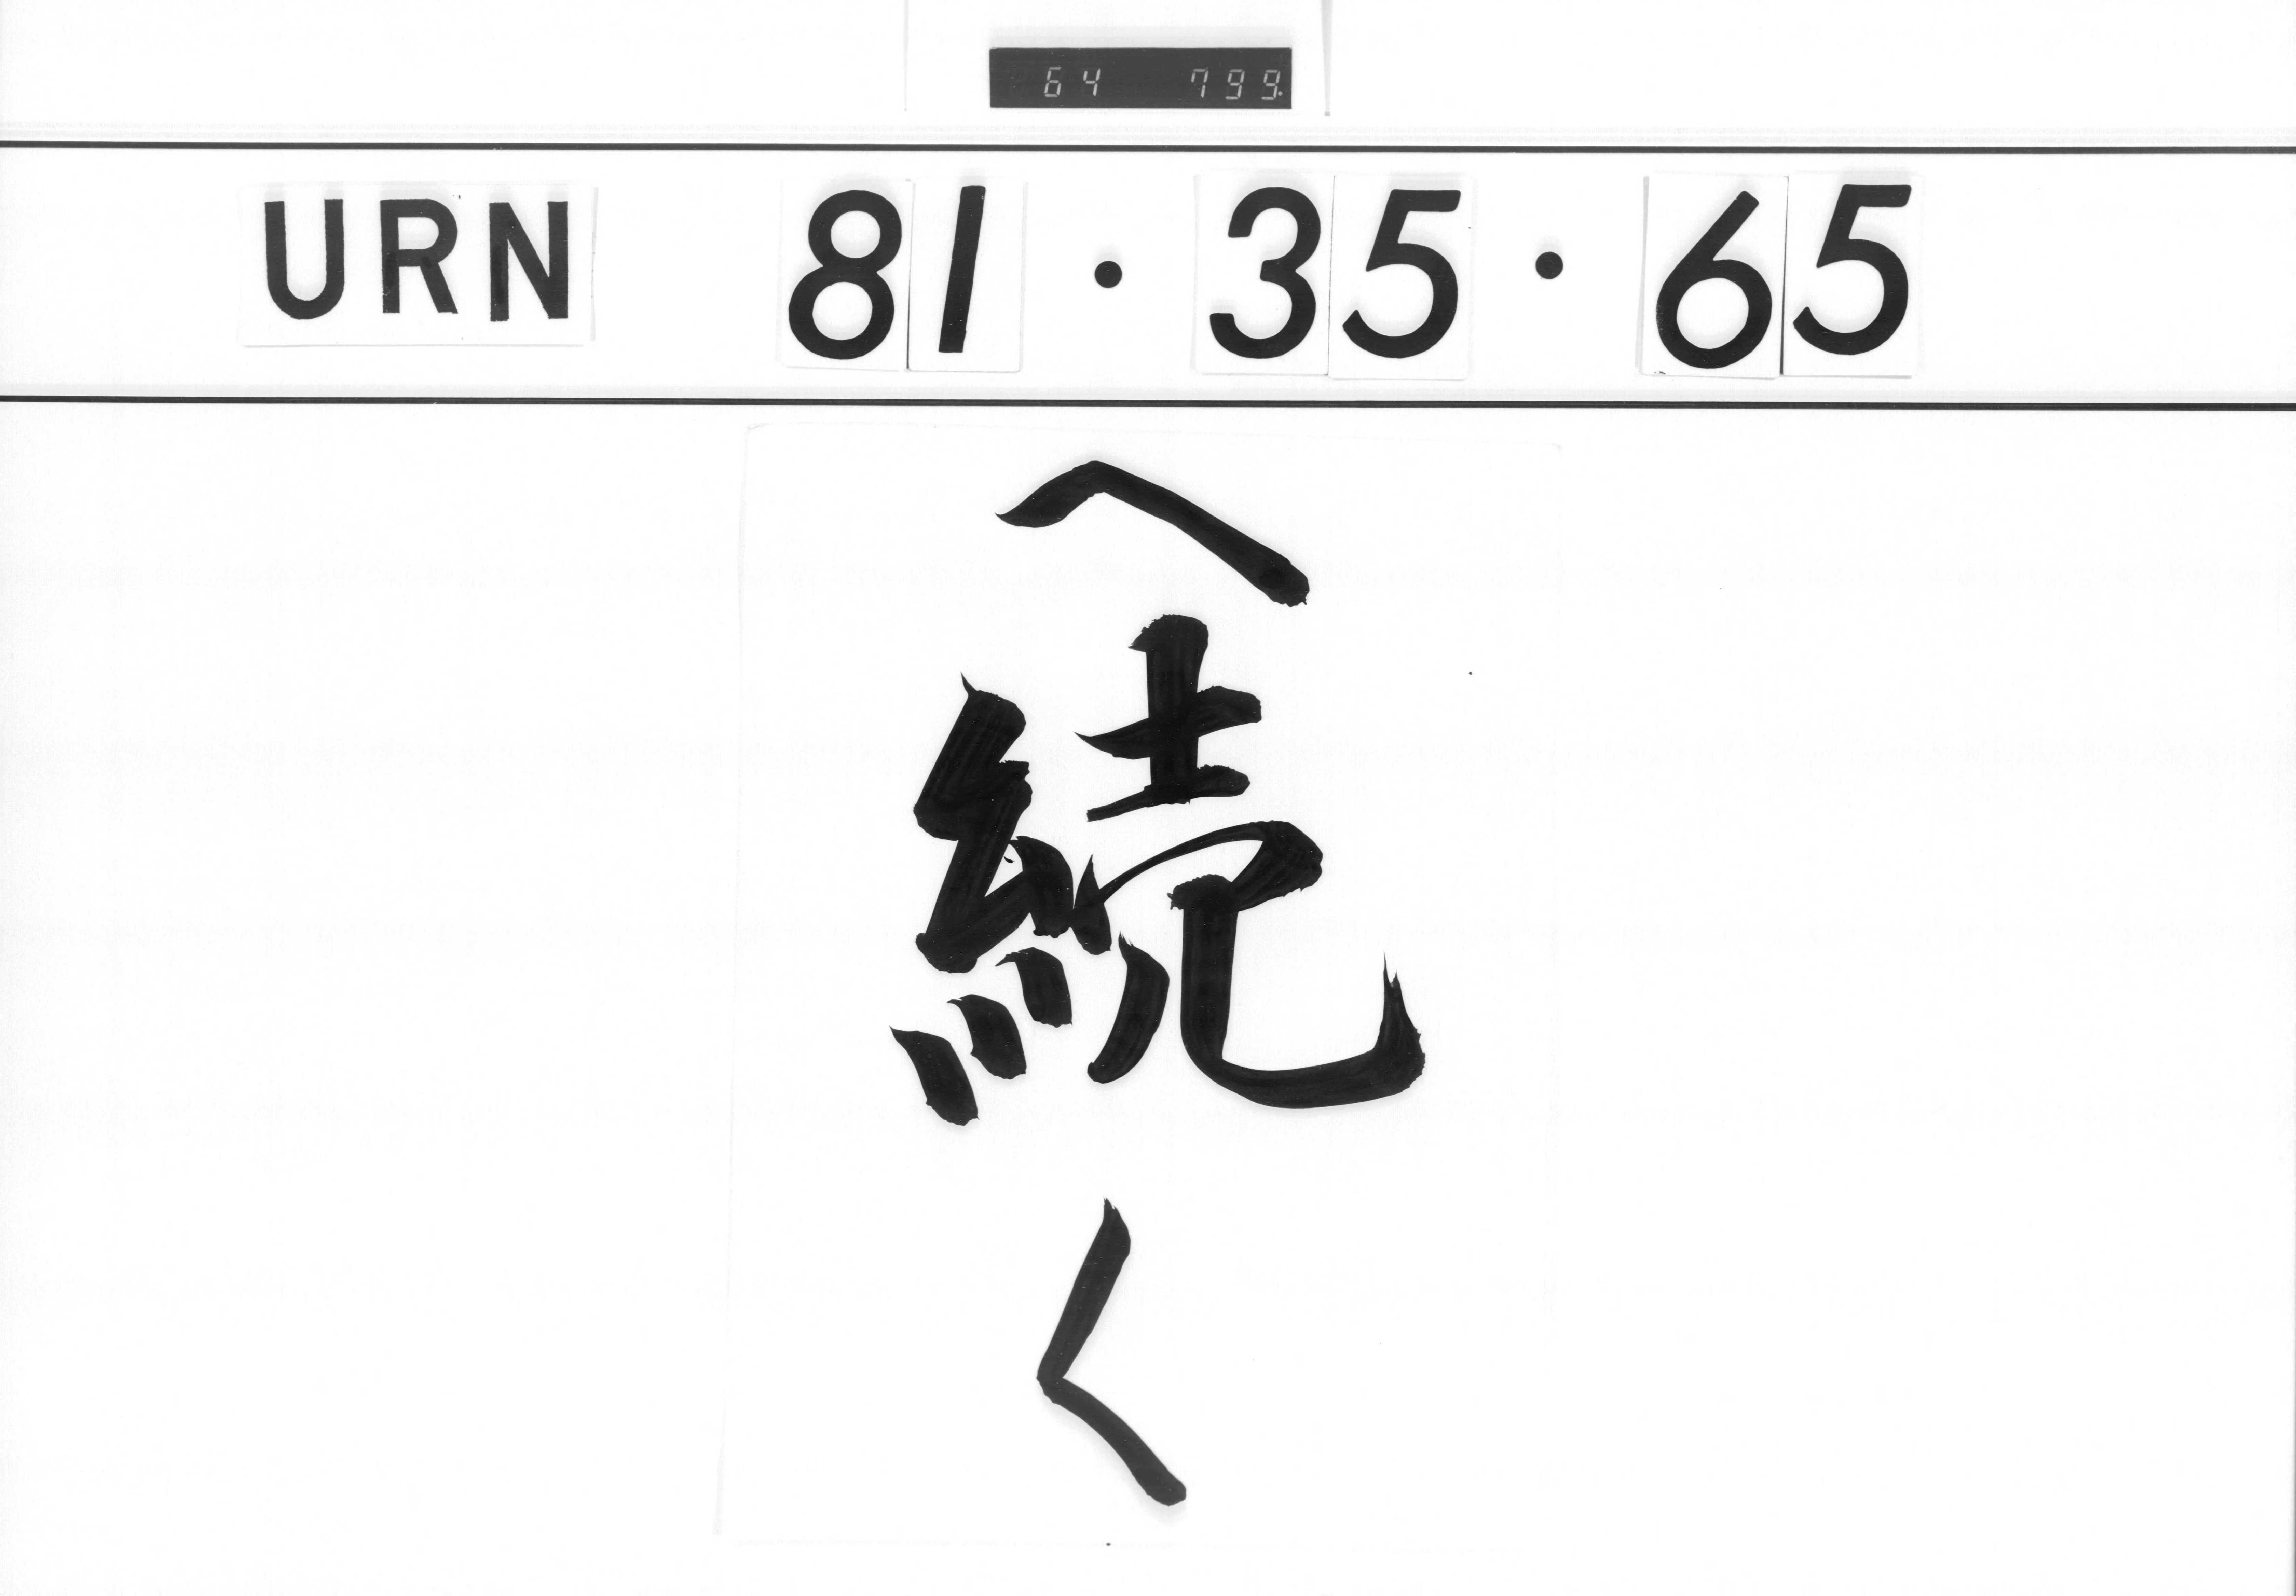 64 799.
URN 81・35・65
へ続く